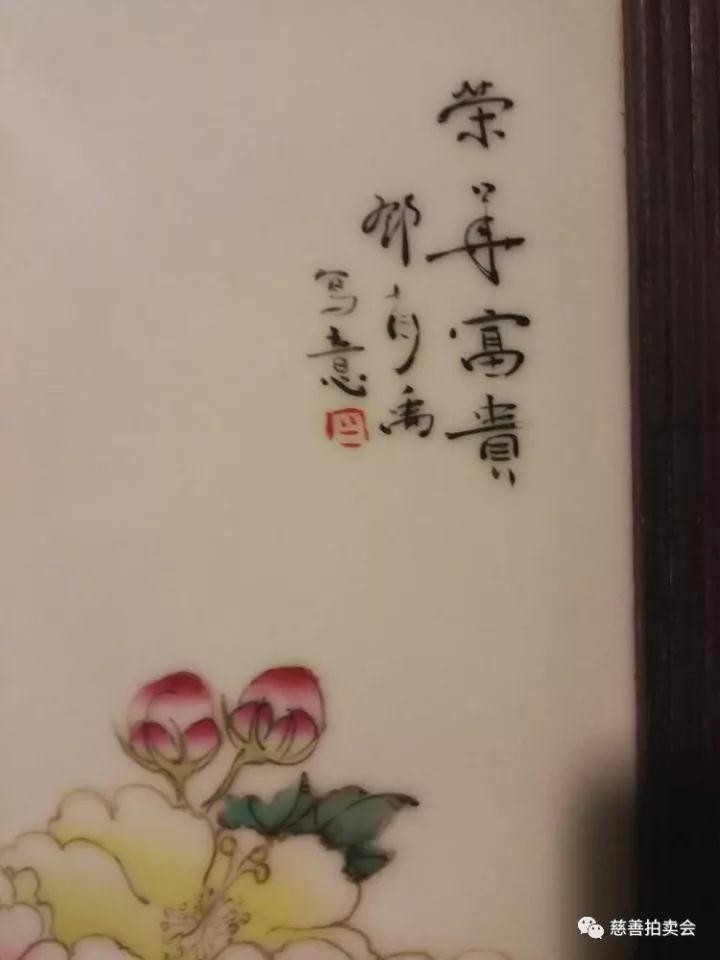 荣华富貴
鄧肖禹
写意
慈善拍卖会